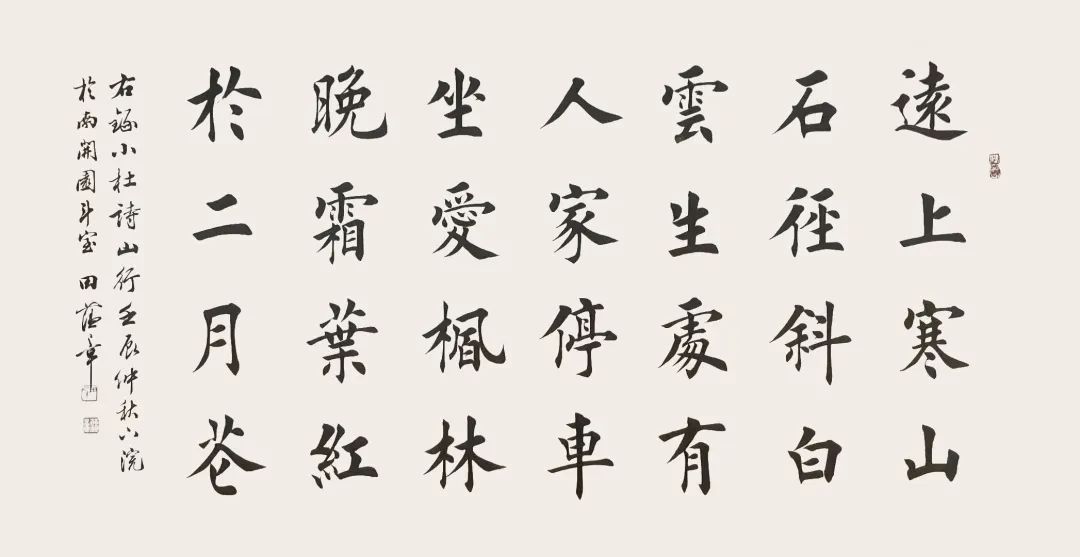 遠上寒山
石徑斜白
雲生處有
人家停車
坐愛楓林
晚霜葉紅
於二月花
右錄小杜詩山行壬辰仲秋下浣
於南開園斗室田蘊章